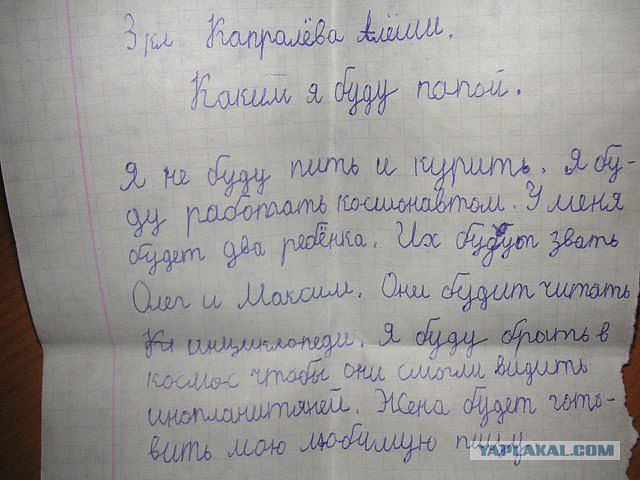 3 кл Капралёва Алёши.
Каким я буду папой.
Я не буду пить и курить. Я бу-
ду работать космонавтом. У меня
будет два ребёнка. Их будут звать
Олег и Максим. Они будит читать
инциклопеди. Я буду брать в
космос чтобы они смогли видить
инопланитяней. Жена будет гото-
вить мою любимую пищу
YAPLAKAL.COM